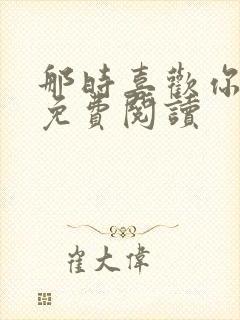 那時喜歡你
免費閱讀
崔大偉